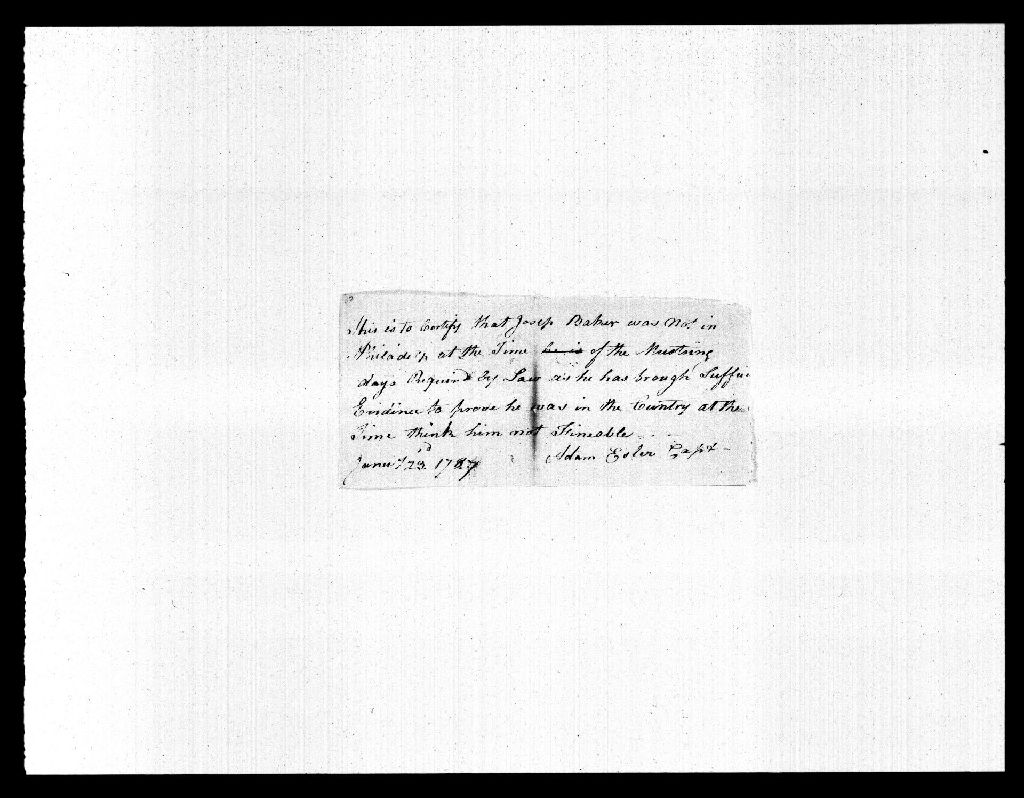 This is to Certify that Josep Baker was not in
Philadelp at the Time he is of the Mustring
days Requir'd by Law as he has brough Suffici
Evidince to prove he was in the Country at the
Time think him not Fineable
June 23d 1787 Adam Esler Capt